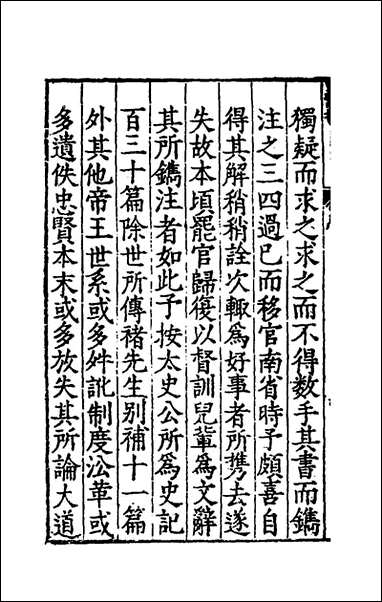 獨疑而求之求之而不得数手其書而鐫
注之三四過已而移官南省時予頗喜自
得其解稍稍詮次輙爲好事者所攜去遂
失故本頃罷官歸復以督訓兒軰爲文辭
其所鐫注者如此予按太史公所爲史記
百三十篇除世所傳褚先生别補十一篇
外其他帝王世系或多舛訛制度沿革或
多遺佚忠賢本末或多放失其所論大道